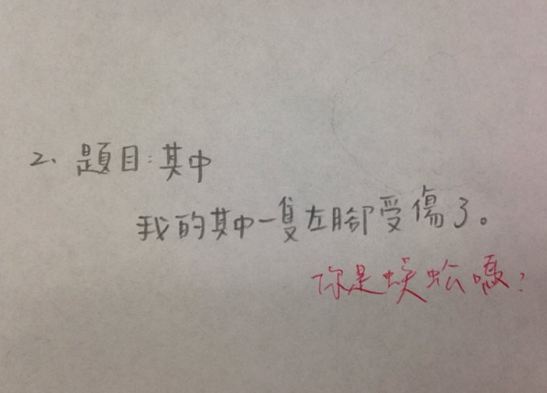 2、題目:其中
我的其中一隻左脚受傷了。
你是蜈蚣嗎?